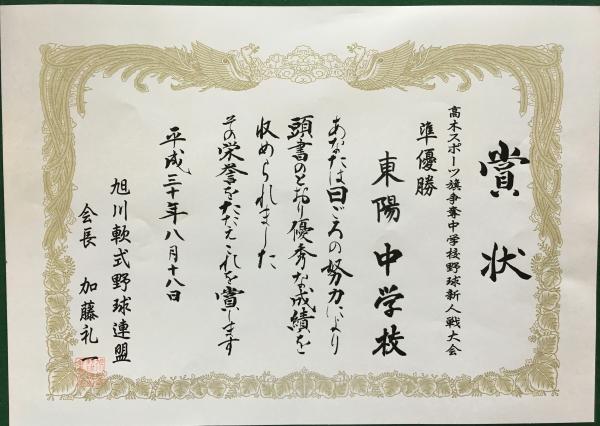 賞状
高木スポーツ旗争奪中学校野球新人戦大会
準優勝
東陽中学校
あなたは日ごろの努力により
頭書のとおり優秀な成績を
収められました
その栄誉をたたえこれを賞します
平成三十年八月十八日
旭川軟式野球連盟
会長 加藤礼一